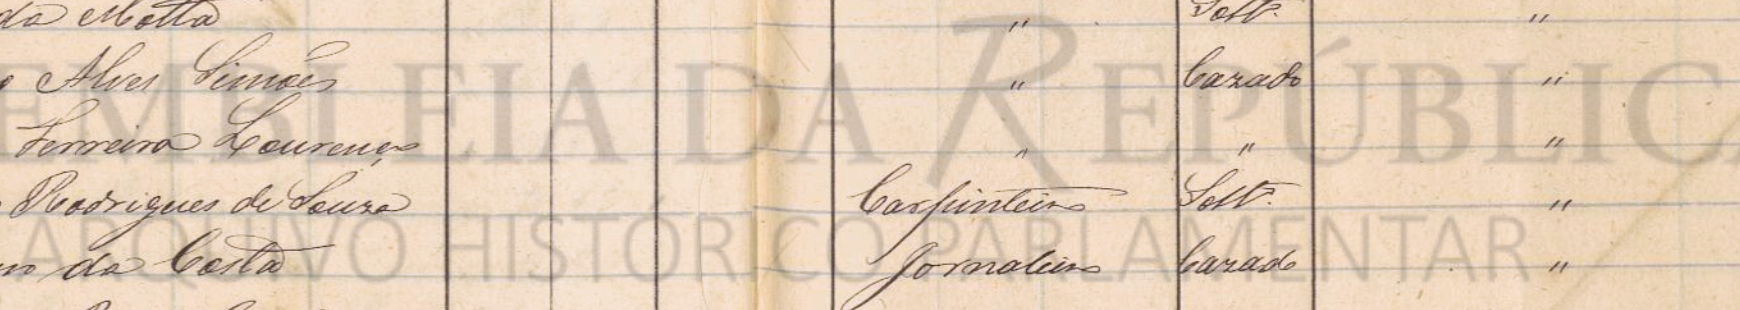 da Motta " Solt. "
Alves Simões " Cazado "
Ferreira Lourenço " " "
Rodrigues de Souza Carpinteiro Solt. "
da Costa Jornaleiro Cazado "
ASSEMBLEIA DA REPÚBLICA
ARQUIVO HISTÓRICO PARLAMENTAR